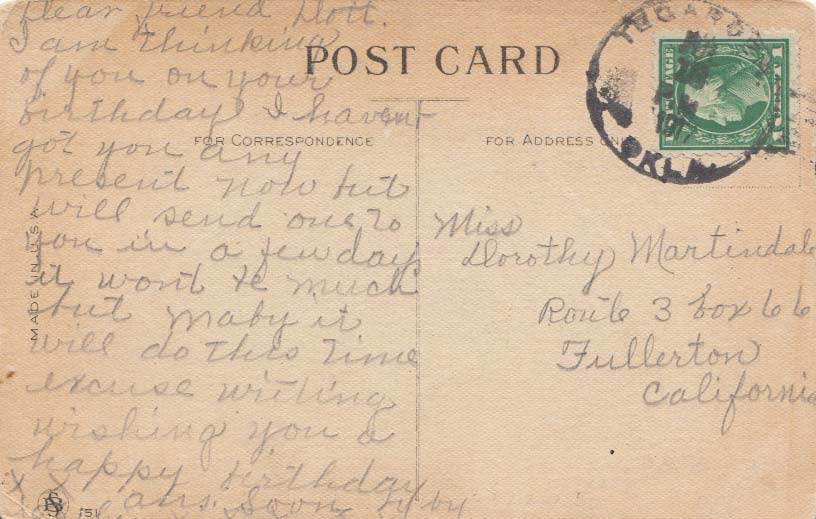 Dear friend Dott.
I am thinking
of you on your
birthday I havent
got you any
present now but
will send one to
you in a few day
it wont be much
but maby it
will do this time
excuse writing
wishing you a
happy birthday
ans. Soon by by
POST CARD
FOR CORRESPONDENCE
FOR ADDRESS ONLY
MADE IN U.S.A.
151
OKLA.
1917
Miss
Dorothy Martindale
Route 3 box 66
Fullerton
California